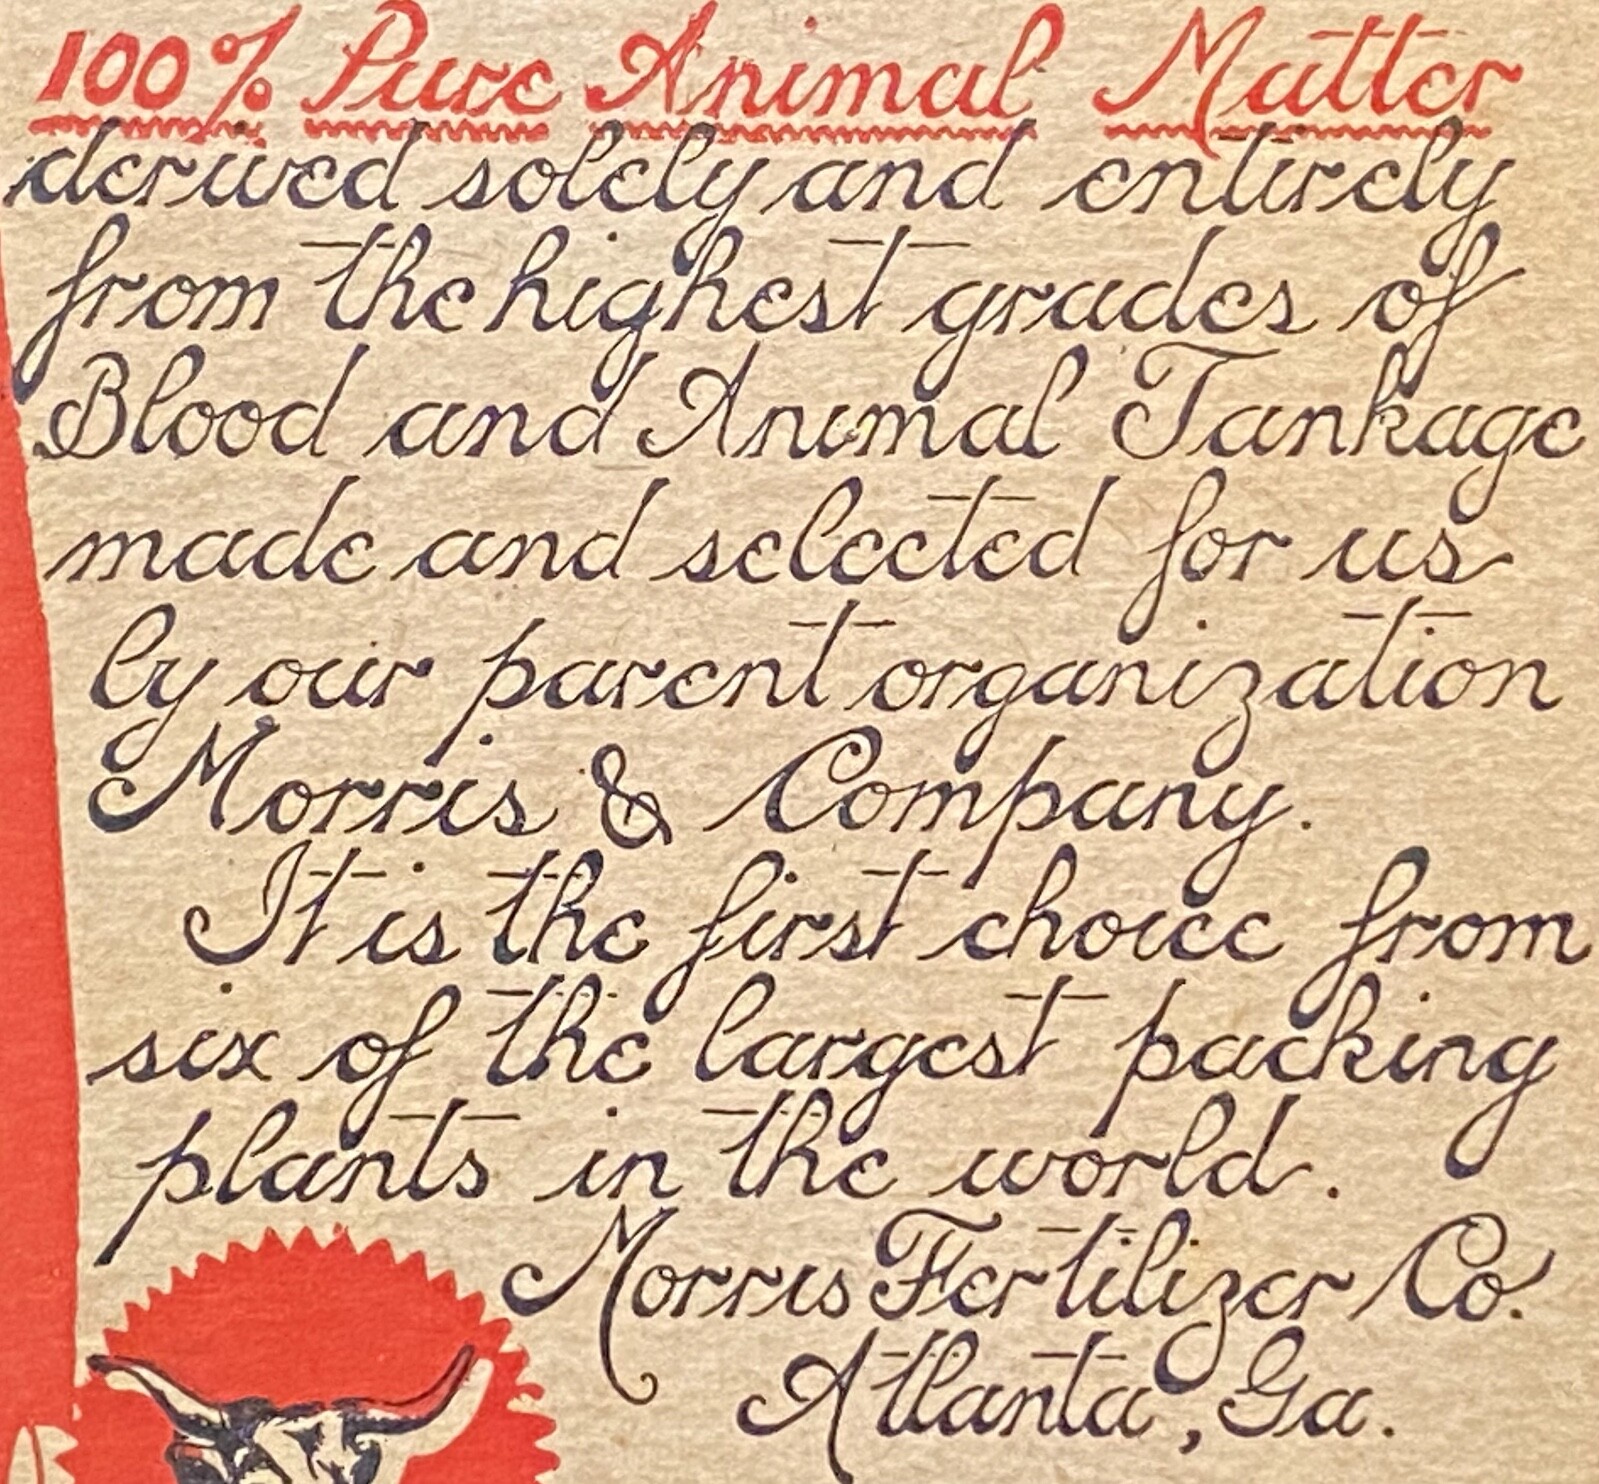 100% Pure Animal Matter
derived solely and entirely
from the highest grades of
Blood and Animal Tankage
made and selected for us
by our parent organization
Morris & Company.
It is the first choice from
six of the largest packing
plants in the world.
Morris Fertilizer Co.
Atlanta, Ga.